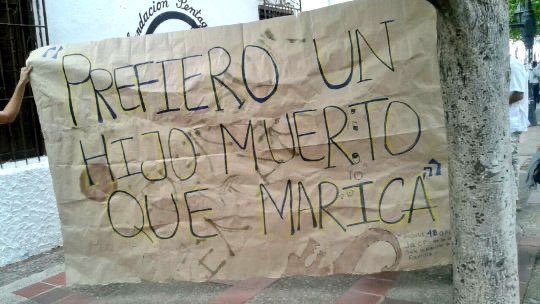 Fundación Pentag
"PREFIERO UN
HIJO MUERTO
QUE MARICA"